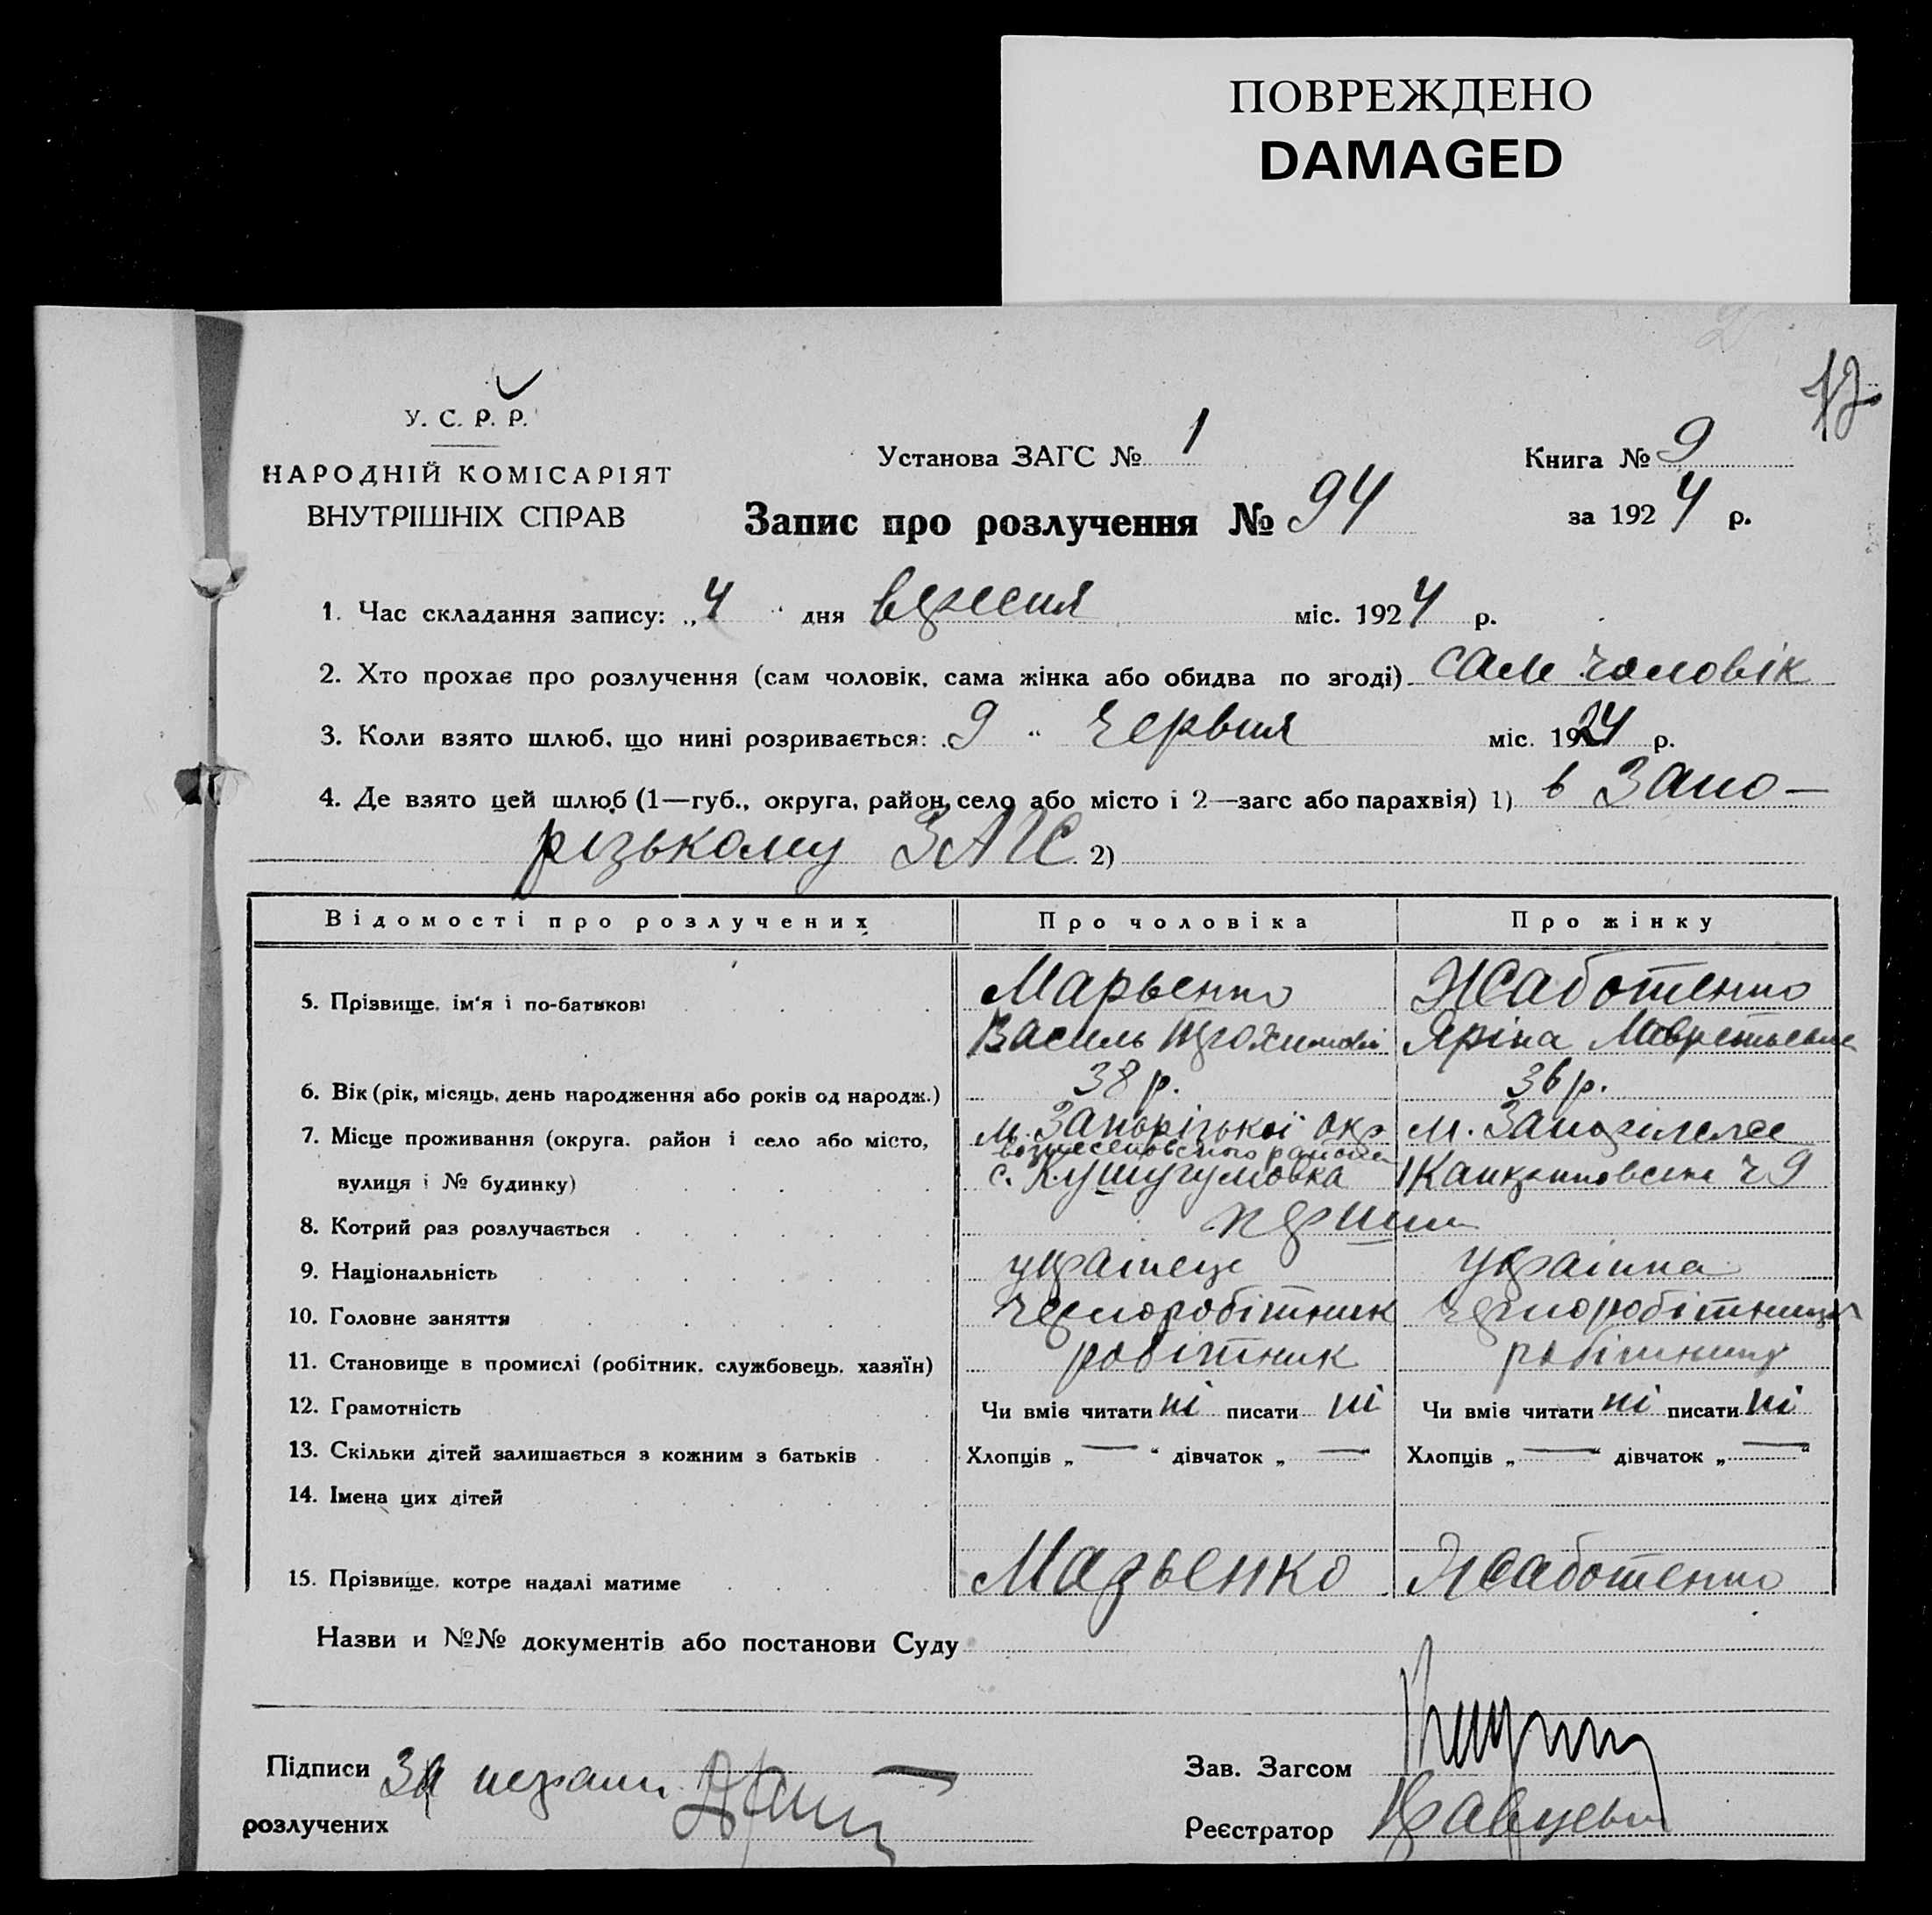 ПОВРЕЖДЕНО
DAMAGED
У. С. Р. Р.
НАРОДНІЙ КОМІСАРІЯТ
ВНУТРІШНІХ СПРАВ
Установа ЗАГС № 1
Книга № 9
Запис про розлучення № 94
за 1924 р.
1. Час складання запису: „4" дня вересня міс. 1924 р.
2. Хто прохає про розлучення (сам чоловік, сама жінка або обидва по згоді) сам чоловік
3. Коли взято шлюб, що нині розривається: 9 " червня міс. 1924 р.
4. Де взято цей шлюб (1—губ., округа, район, село або місто і 2—загс або парахвія) 1) в Запо-
різькому ЗАГС 2)
Відомості про розлучених Про чоловіка Про жінку
5. Прізвище, ім'я і по-батькові Марьенко Жаботенко
Василь Трохимович Яріна
6. Вік (рік, місяць, день народження або років од народж.) 38 р. 36 р.
7. Місце проживання (округа, район і село або місто, м. Запорізької окр м. Запоріжжє
вознесеновського района
вулиця і № будинку) с. Кушугумовка ч 9
8. Котрий раз розлучається перший
9. Національність українець українка
10. Головне заняття чорноробітник чорноробітниця
11. Становище в промислі (робітник, службовець, хазяїн) робітник робітниця
12. Грамотність Чи вміє читати ні писати ні Чи вміє читати ні писати ні
13. Скільки дітей залишається з кожним з батьків Хлопців „ — " дівчаток „ — " Хлопців „ — " дівчаток „ — "
14. Імена цих дітей
15. Прізвище, котре надалі матиме Марьенко Жаботенко
Назви и №№ документів або постанови Суду
Підписи За неграм.
розлучених
Зав. Загсом
Реєстратор